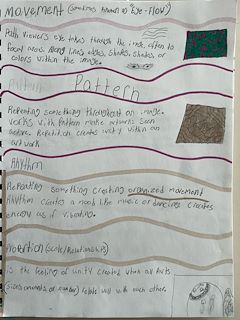 Movement (sometimes known as Eye-Flow)
Path viewers eye takes through the image, often to
focal areas. Along lines, edges, shapes, shades, or
colors within the image.
Pattern
Repeating something throughout an image.
works with pattern make artwork seem
active. Repetition creates unity within an
artwork
Rhythm
Repeating something creating organized movement
Rhythm creates a mood like music or dancing creates
energy as if vibrating.
Proportion (scale/Relationships)
is the feeling of unity created when all parts
(sizes, amounts, or number) relate well with each other.